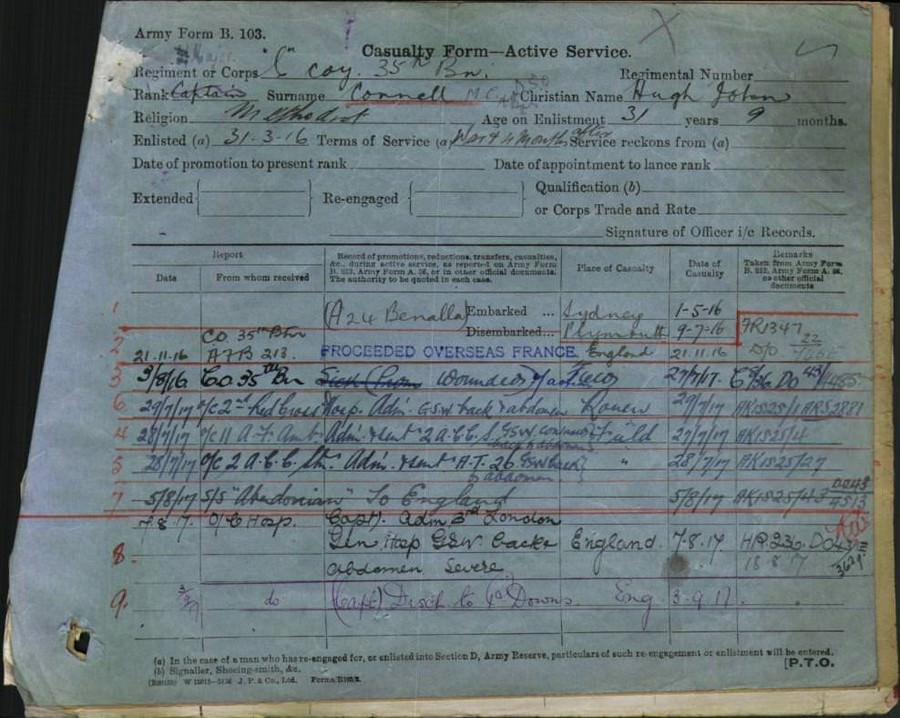 Army Form B. 103.
Major
Casualty Form—Active Service.
Regiment or Corps "C" Coy. 35th Bn. Regimental Number
Rank Captain Surname Connell M.C. Christian Name Hugh John
Religion Methodist Age on Enlistment 31 years 9 months.
Enlisted (a) 31-3-16 Terms of Service (a) War & 4 Months after Service reckons from (a)
Date of promotion to present rank Date of appointment to lance rank
Extended Re-engaged Qualification (b)
or Corps Trade and Rate
Signature of Officer i/c Records.
Report
Date From whom received
Record of promotions, reductions, transfers, casualties, &c., during active service, as reported on Army Form B. 213, Army Form A. 36, or in other official documents. The authority to be quoted in each case.
Place of Casualty
Date of Casualty
Remarks
Taken from Army Form B. 213, Army Form A. 36, or other official documents
1 (A24 Benalla) Embarked ... Sydney 1-5-16
Disembarked ... Plymouth 9-7-16 FR1347
2 21.11.16 CO. 35th Btn AFB 213. PROCEEDED OVERSEAS FRANCE. England 21.11.16 D/O 22
3 3/8/16 C.O. 35th Bn Sick (from wounded) / act. Field 27/7/17. DO 43
6 29/7/17 o/c 2nd Red Cross Hosp. Adm. GSW back & abdomen Rouen 29/7/17 AK1525/1 AR52881
4 28/7/17 o/c 11 A.F. Amb. Adm. & sent 2 A.C.C.S. GSW Field 27/7/17 AK1525/4
5 28/7/17 o/c 2 A.C.C. Stn. Adm. & sent A.T. 26 GSW back & abdomen " 28/7/17 AK1525/27
7 5/8/17 S/S "Aberdonian" To England 5/8/17 AK1525/43 DO43 4513
8. 7.8.17. O/C Hosp. (Capt). Adm 3rd London
Gen Hosp GSW. back & England. 7.8.17. HR.236. DO43
abdomen Severe 18 8 17 3629
9. do (Capt) Disch to Pa Downs. Eng 3-9-17.
(a) In the case of a man who has re-engaged for, or enlisted into Section D, Army Reserve, particulars of such re-engagement or enlistment will be entered.
(b) Signaller, Shoeing-smith, &c.
[P.T.O.
J. P. & Co., Ltd.